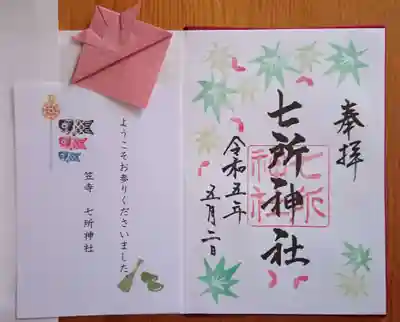 奉拝
七所神社
七所
神社
令和五年
五月二日
ようこそお参りくださいました
笠寺 七所神社